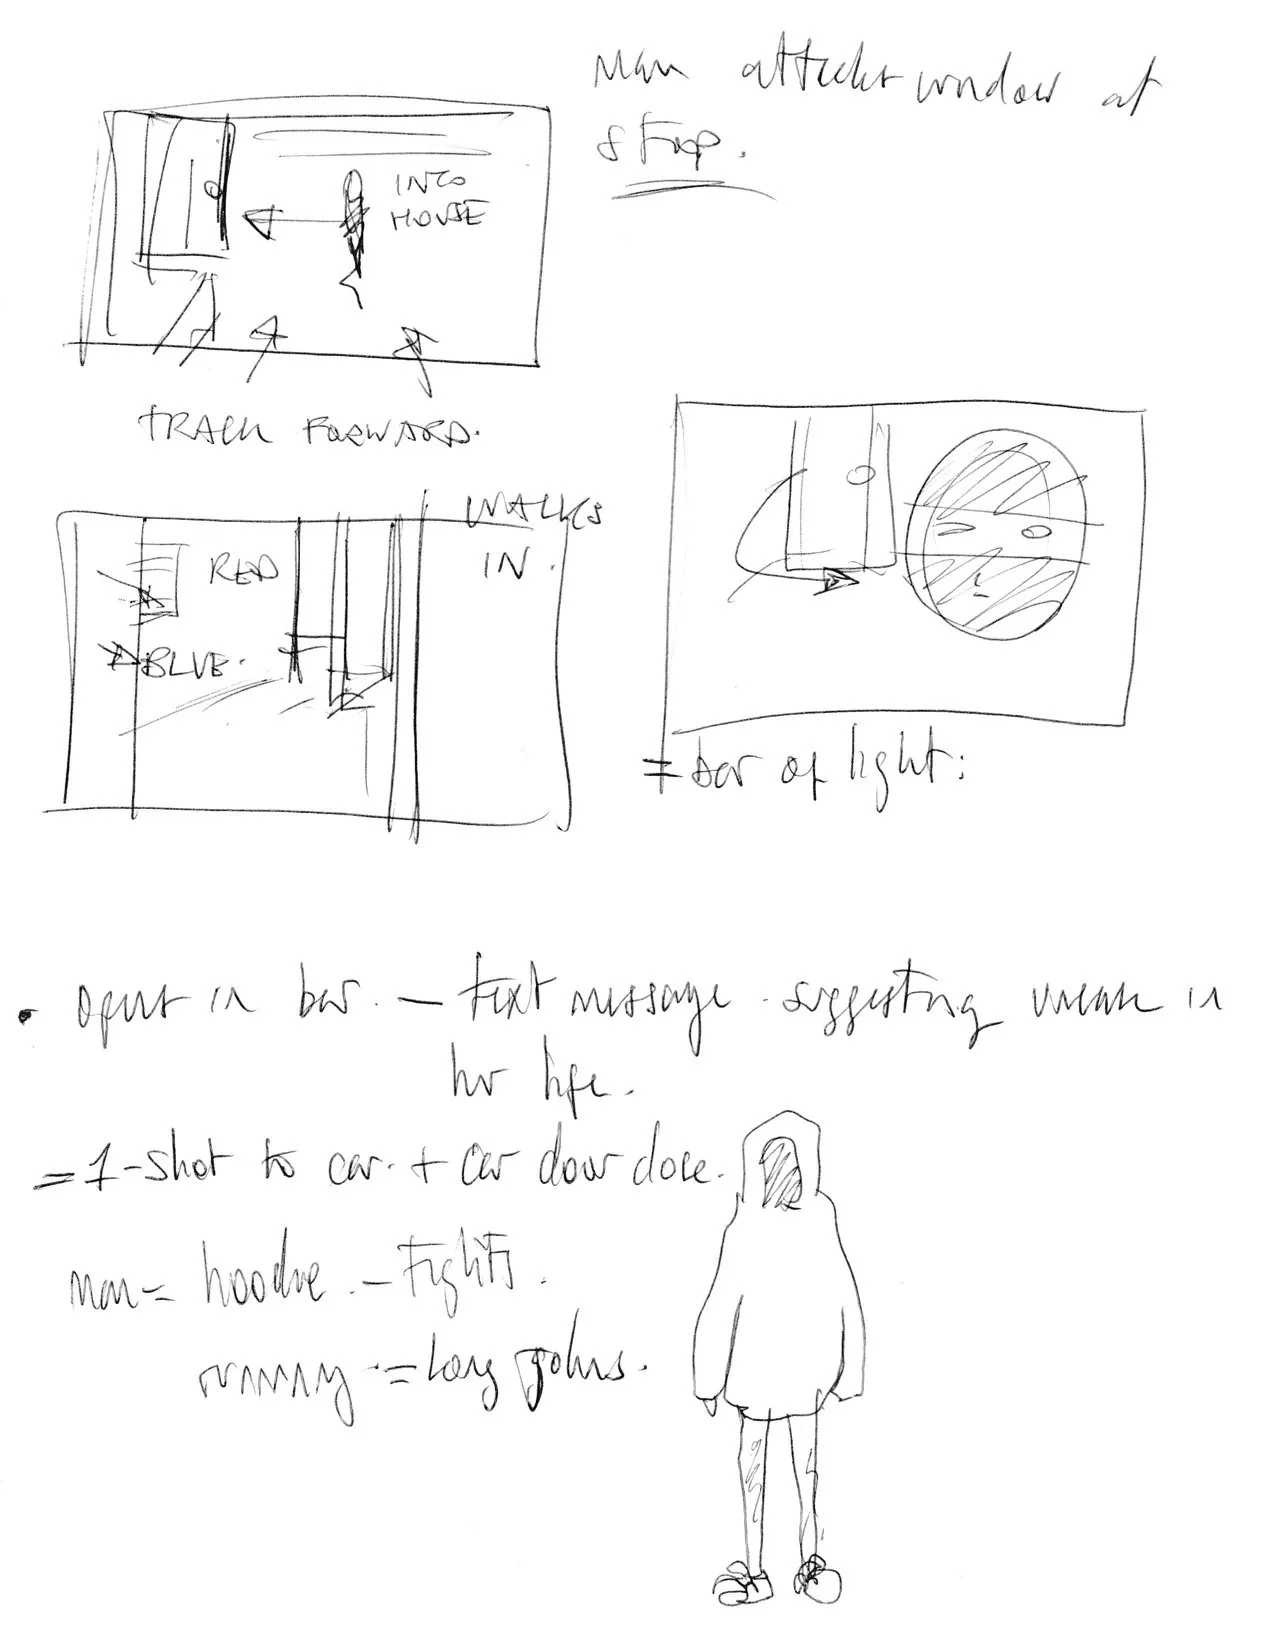 Man attacks window at
stop.
INTO
HOUSE
TRACK FORWARD.
WALKS
IN.
RED
BLUE.
= bar of light:
• opens in bar. — text message. suggesting in
her life.
= 1-shot to car. + car door close.
man = hoodie. — Tights.
running = Long johns.